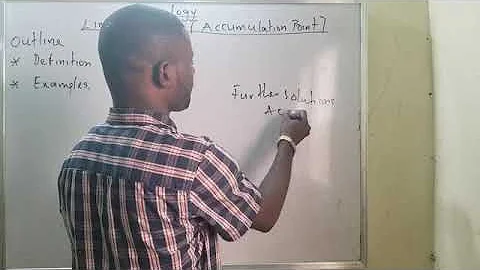 (Accumulation Point)
Outline
* Definition
* Examples.
Further Solutions